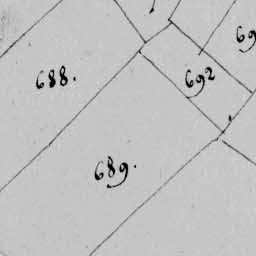 688.
692
689.